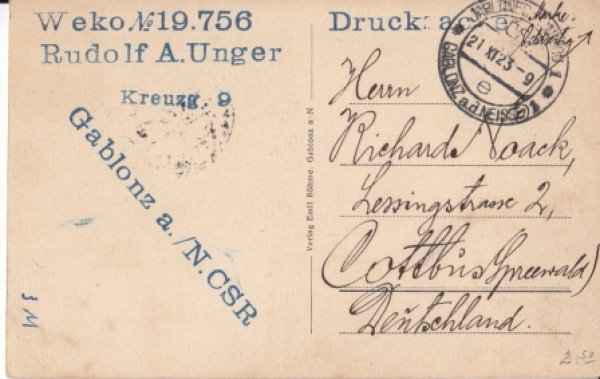 Weko № 19.756
Rudolf A. Unger
Kreuzg. 9
Gablonz a./N. CSR
Drucks
21 XI 23 - 9
e
GABLONZ a.d. NEISSE 1
Verlag Emil Böhme, Gablonz a. N.
Herrn
Richard Noack,
Lessingstrasse 2,
Cottbus (Spreewald)
Deutschland.
3 M
2.50